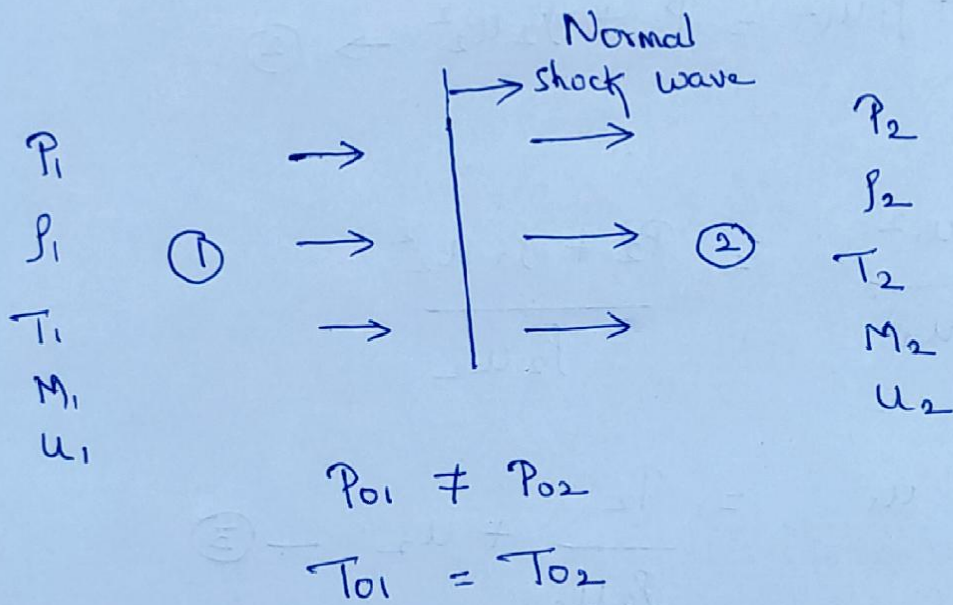 Normal
shock wave
P₁
ρ₁
T₁
M₁
u₁
①
②
P₂
ρ₂
T₂
M₂
u₂
P₀₁ ≠ P₀₂
T₀₁ = T₀₂